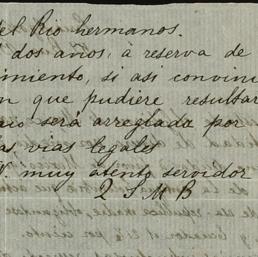 del Rio hermanos.
dos años, á reserva de
imiento, si asi convini
n que pudiere resultar
será arreglada por
as vias legales
muy atento servidor
2 S M B